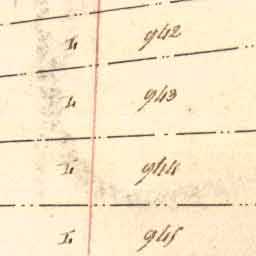 I. 942
I. 943
I. 944
I. 945